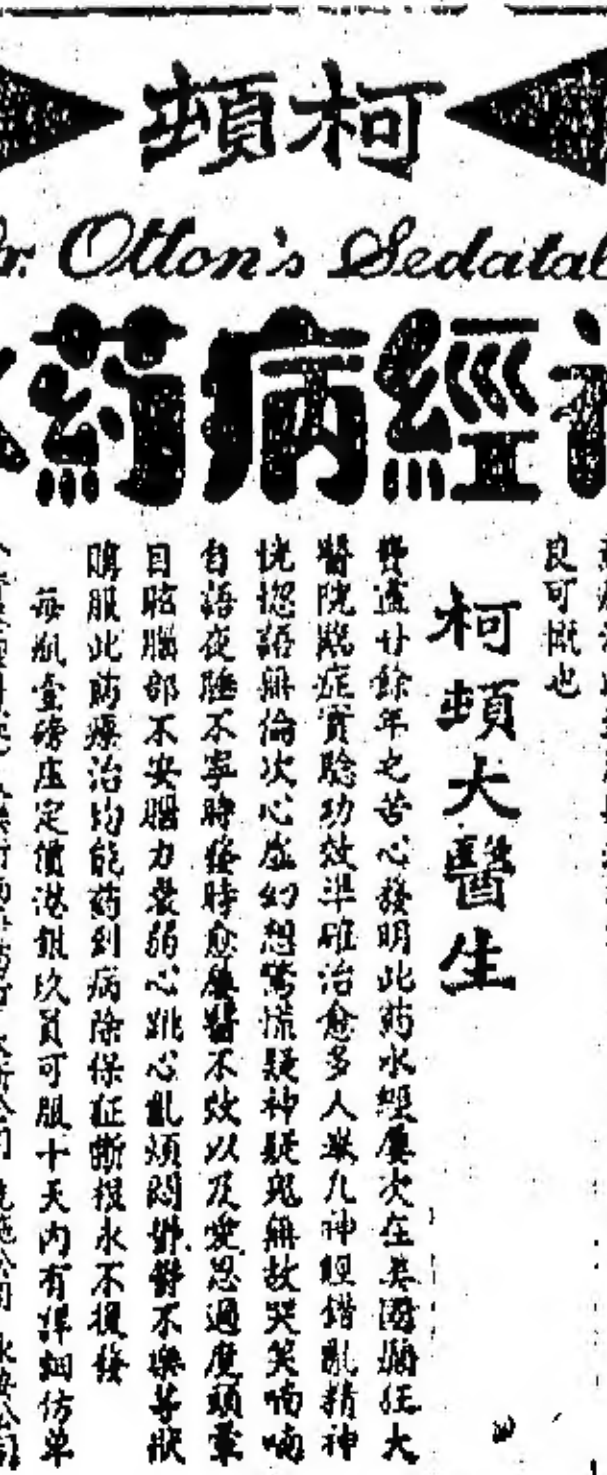 柯頓
Dr. Otton's Sedatal
經病葯
良可慨也
柯頓大醫生
費盡廿餘年之苦心發明此葯水經屢次在英國癲狂大
醫院臨症實驗功效準確治愈多人凡神經錯亂精神
恍惚語無倫次心虛幻想驚慌疑神疑鬼無故哭笑喃喃
自語夜睡不寧時發時愈屢醫不效以及憂思過度頭暈
目眩腦部不安腦力衰弱心跳心亂煩悶鬱不樂等狀
服此葯療治均能葯到病除保証斷根永不復發
每瓶壹磅庄定價港銀玖員可服十天內有詳細仿单